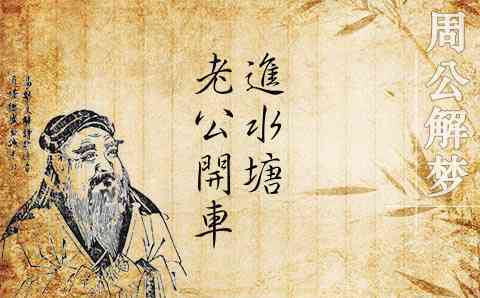 周公解梦
老公開車
進水塘